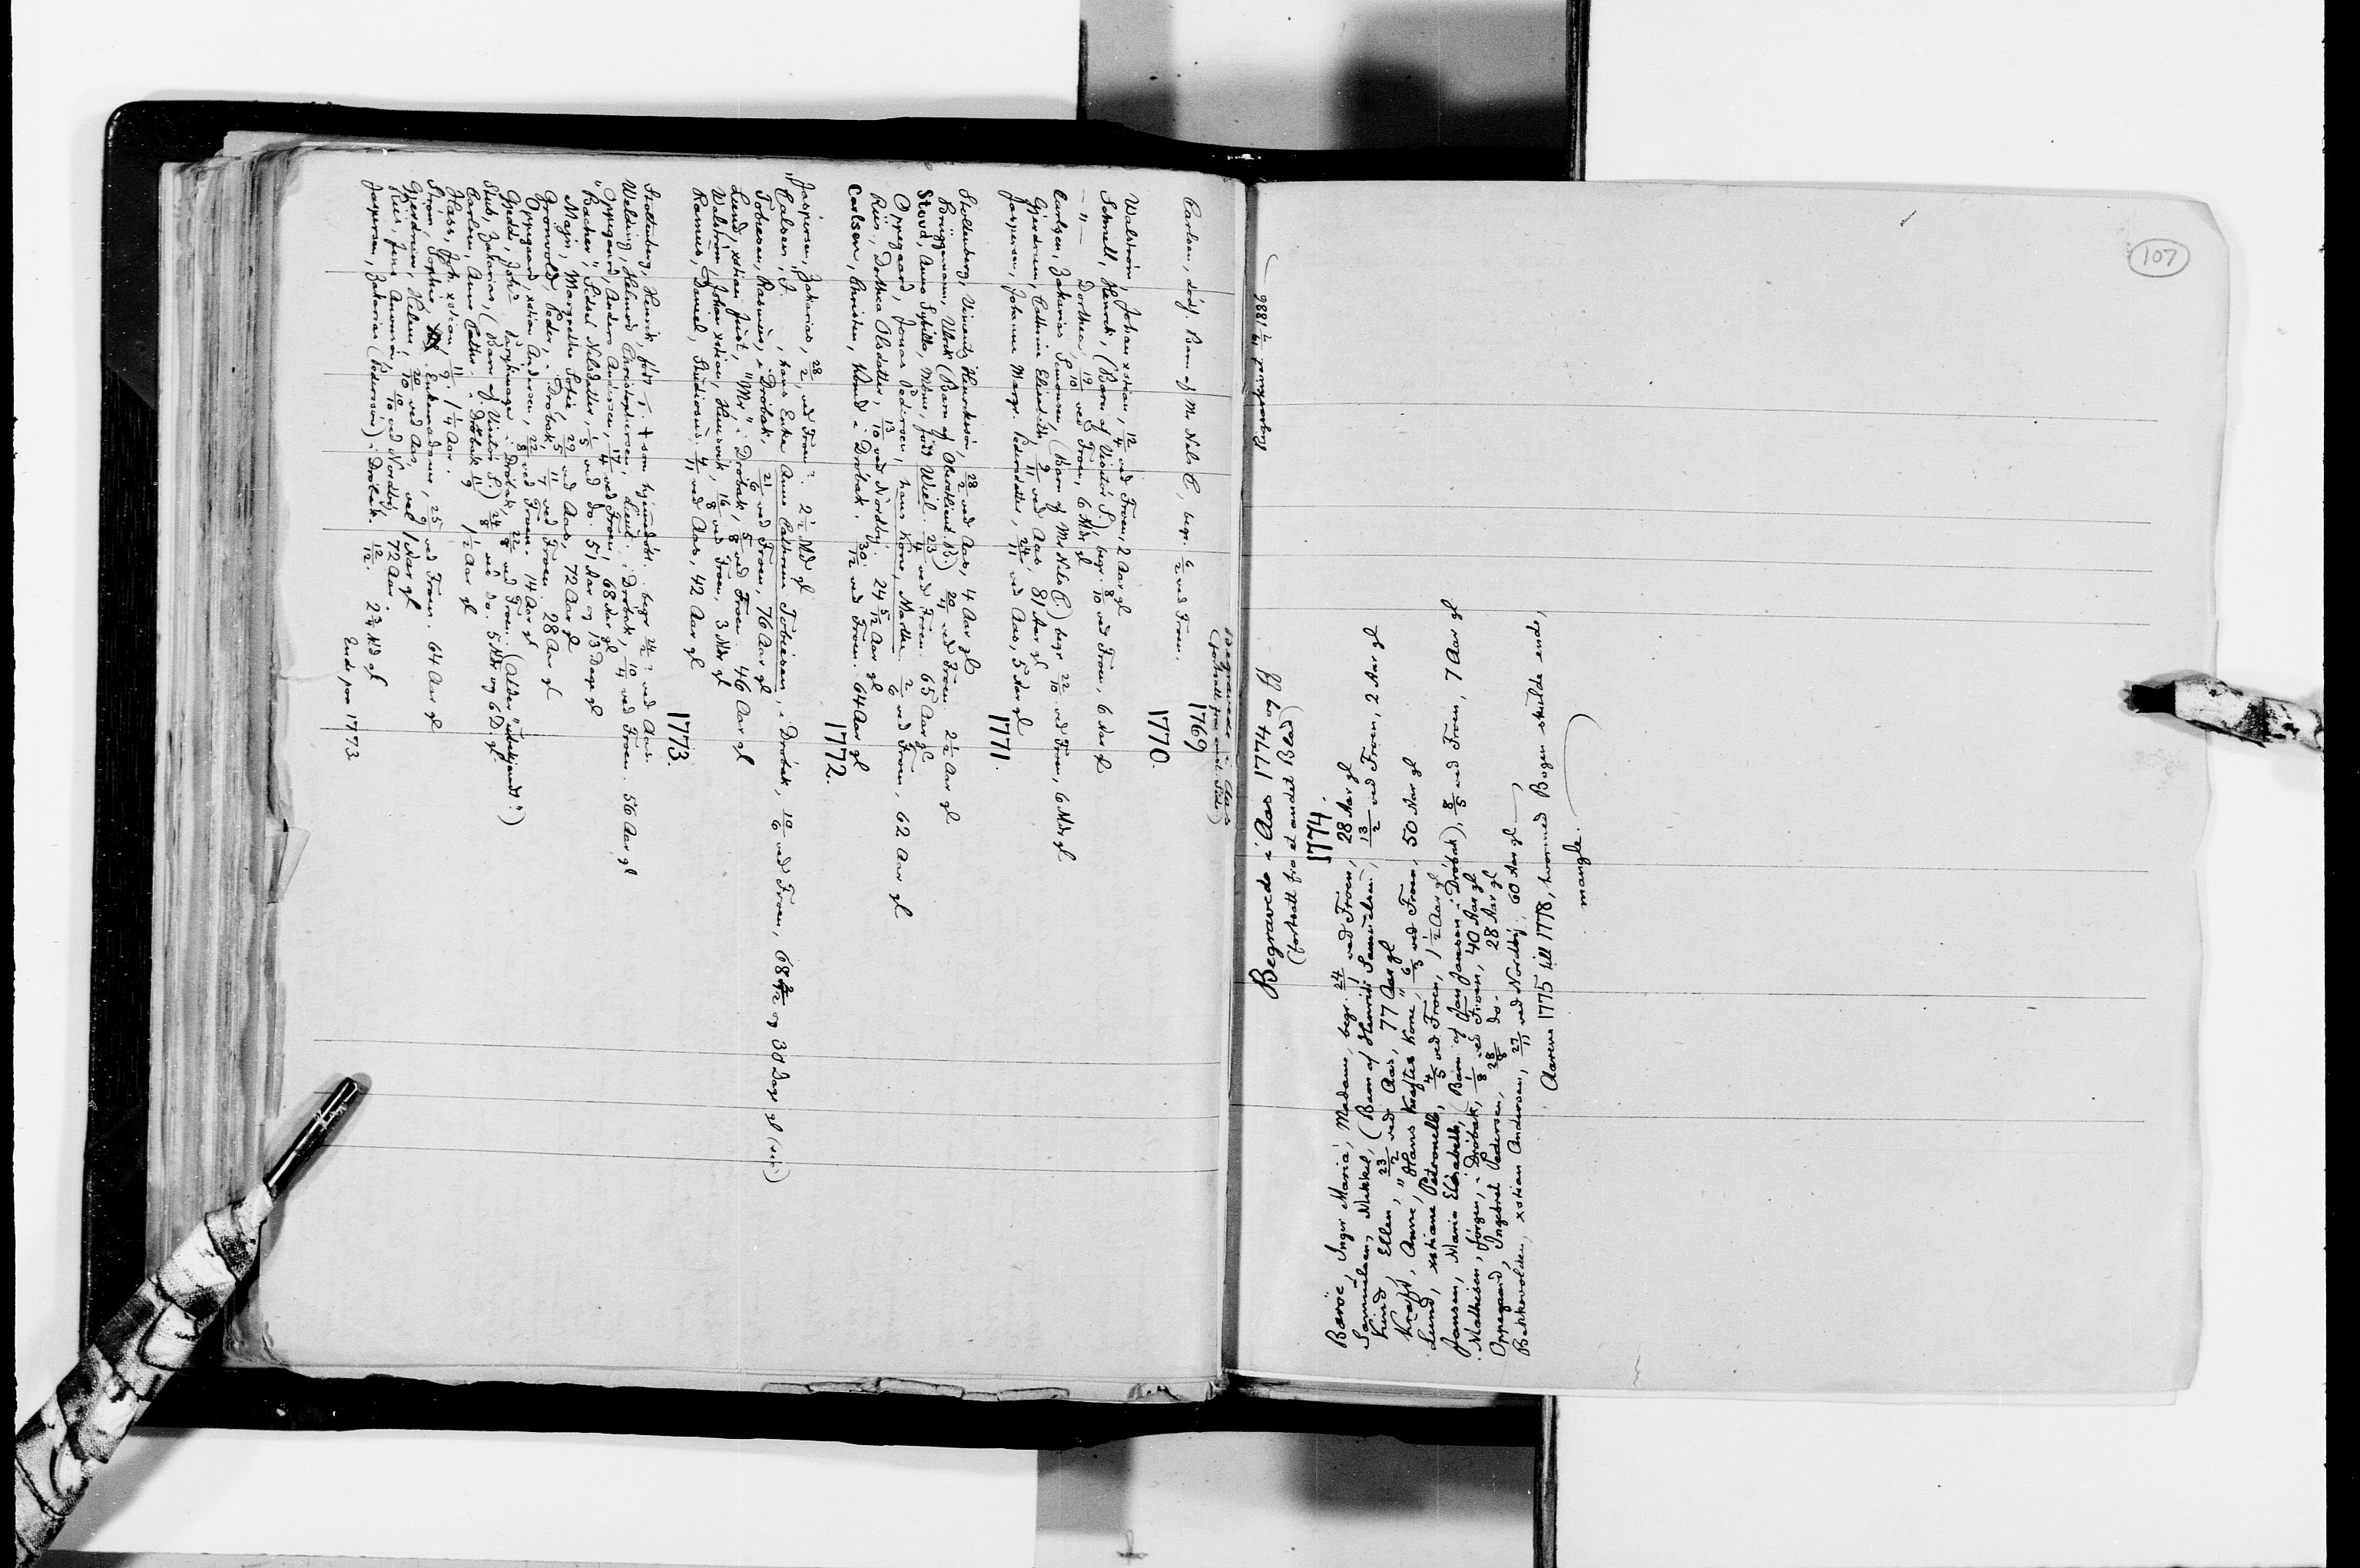 Begravede i Aas
(fortsatt fra anden Side)
1769
Carlsen, dødf. Barn af Mr Nels C, begr. 6/2 ved Froen.
1770.
Walstrøm, Johan xstian, 12/4 ved Froen, 2 Aar gl
Schnell, Henrich, (Barn af Visitør S.) begr. 8/10 ved Froen, 6 Aar gl
— " — Dorthea, 19/10 ved Froen, 6 Mdr gl
Carlsen, Zakarias Simonsen, (Barn af Mr Nils C.) begr 22/10 ved Froen, 6 Mdr gl
Gjerdrum, Cathrine Elisabeth, 9/11 ved Aas, 81 Aar gl
Jaspersen, Johanne Margr. Pedersdatter, 24/11 ved Aas, 5 Aar gl
1771.
Stoltenberg, Vincents Henriksøn, 28/2 ved Aas, 4 Aar gl
Brüggemann, Ulrik (Barn af Oberstlieut. B.) 20/4 ved Froen 2 1/2 Aar gl
Stoud, Anna Sybilla, Mdme, født Wiel. 23/4 ved Froen. 65 Aar gl
Oppegaard, Jonas Pedersen, hans Kone, Marthe 2/6 ved Froen, 62 Aar gl
Riis, Dorthea Olsdatter, 13/10 ved Nordby. 24 5/12 Aar gl
Carlsen, Christen, Mand i Drøbak. 30/12 ved Froen. 64 Aar gl
1772.
Jaspersen, Zakarias, 28/2 ved Froen? 2 1/2 Md gl
"Calsen", J. , hans Enke Anne Cathrine Tobiesen, i Drøbak, 10/6 ved Froen, 68 og 30 Dage gl (sic)
Tobiesen, Rasmus, i Drøbak, 21/6 ved Froen, 76 Aar gl
Lund, xstian Just, "Mr", i Drøbak, 5/8 ved Froen 46 Aar gl
Walstrøm, Johan xstian, Henrik, 16/8 ved Froen, 3 Mdr gl
Ramus, Daniel, Studiosus. 4/11 ved Aas, 42 Aar gl
1773.
Stoltenberg, Henrik, født og + som hjemmedøbt. begr 24/2? ved Aas.
Welding, Helmod Christophersen, Lieut. i Drøbak, 10/4 ved Froen. 56 Aar gl
Oppegaard, Anders Andersen, 17/4 ved Froen, 68 Aar gl
"Bacher", Sidsel Nilsdatter, 1/5 ved do. 51 Aar og 13 Dage gl
Majn, Margrethe Sofie, 29/5 ved Aas, 72 Aar gl
Grønvold, Peder, i Drøbak, 11/7 ved Froen. 28 Aar gl
Oppegaard, xstian Andersen, 22/8 ved Froen. 14 Aar gl
Gjedde, Johs i Drøbak, 22/8 ved Froen. (Alder "ubekjendt".)
Stub, Zakarias, (Barn af Visitør S.) 24/8 ved do. 5 Mdr og 6 D. gl
Carlsen, Anne Cathr. i Drøbak 11/9 1 1/2 Aar gl
Hass, Joh. xstian, 11/9. 1 1/4 Aar.
Strøm, Sophie, Enkemadame, 25/9 ved Froen. 64 Aar gl
Gjerdrum, Helene, 20/10 ved Aas, vel 1 Aar gl
Riis, Jens Amonsøn, 10/10 ved Nordby. 72 Aar.
Jaspersen, Zakarias (Pedersson) i Drøbak. 12/12. 2 3/4 Md gl
Ende for 1773.
107
Rigsarkivet 1886
Begravede i Aas 1774 og ff
(fortsatt fra et andet Blad)
1774.
Barøe, Inger Maria, Madame, begr. 24/1 ved Froen, 28 Aar gl
Samuelsen, Mikkel, (Barn af Henrich Samuelsen), 13/2 ved Froen, 2 Aar gl
Lund, Ellen, 23/2 ved Aas, 77 Aar gl
Krafft, Anne, "Hans Kraftes Kone", 6/3 ved Froen, 50 Aar gl
Lund, xstiane Petronelle, 4/5 ved Froen, 1 1/2 Aar gl
Jansen, Maria Elisabeth, (Barn af Jan Jansen i Drøbak), 8/5 ved Froen, 7 Aar gl
Mathesen, Jørgen, i Drøbak, 1/8 ved Froen, 40 Aar gl
Oppegaard, Ingebret Pedersen, 28/8 do. 28 Aar gl
Bakkevolden, xstian Andersen, 27/11 ved Nordby, 60 Aar gl
Aarene 1775 till 1778, hvormed Bogen skulde ende,
mangle.